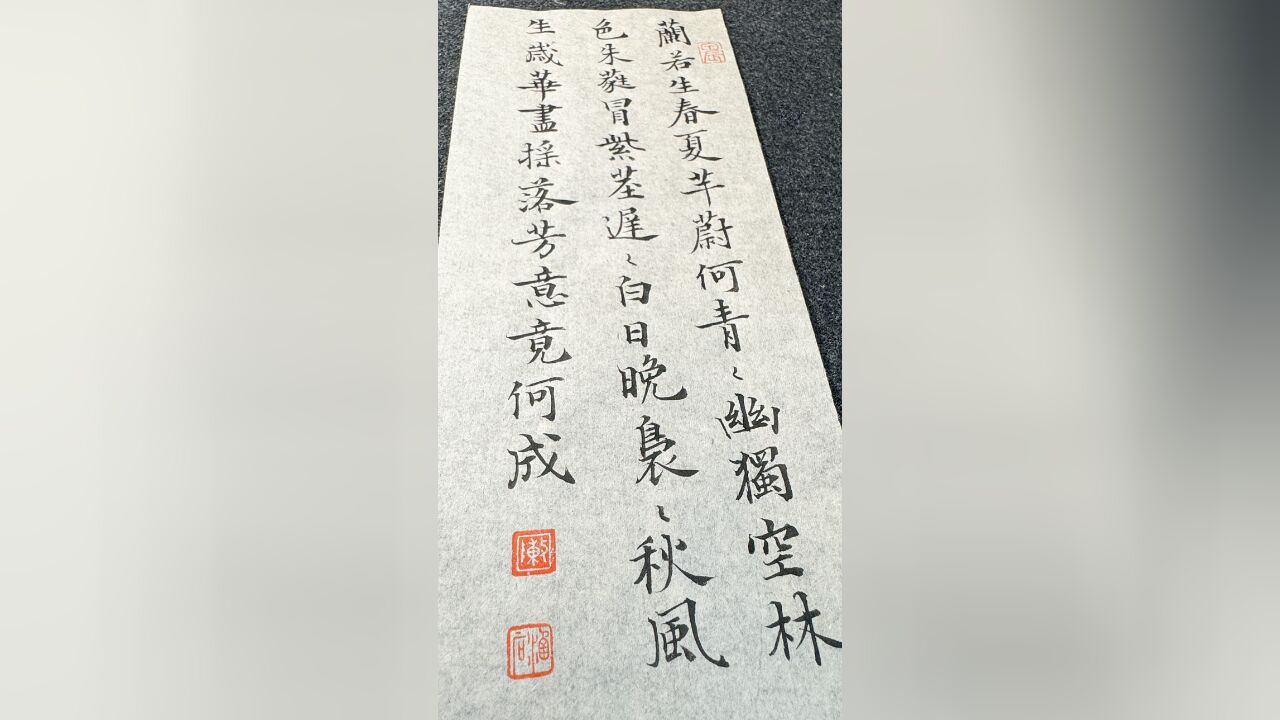 蘭若生春夏芊蔚何青〻幽獨空林
色朱蕤冒紫莖遲〻白日晚裊〻秋風
生歲華盡採落芳意竟何成